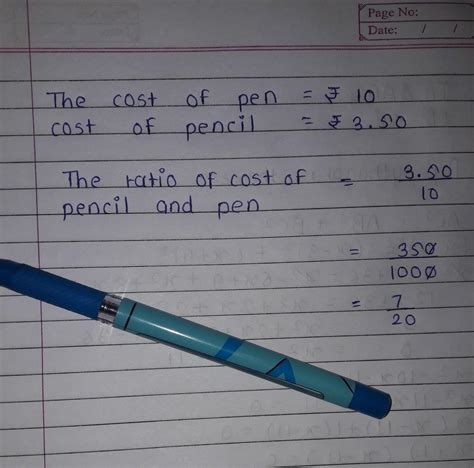 Page No:
Date: / /
The cost of pen = ₹ 10
cost of pencil = ₹ 3.50
The ratio of cost of pencil and pen = 3.50/10
= 350/1000
= 7/20